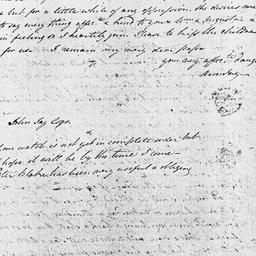 but for a little while of any oppression. she desires me
to say every thing affec.te & kind to you & Augusta
in feeling or I heartily join. Please to kiss the children
for us. I remain my very dear Papa
your very affec.te Daughter
John Jay Esqr.
Your watch is not yet in complete order but
hope it will be by the time I come
Peter Blake has been very useful & obliging